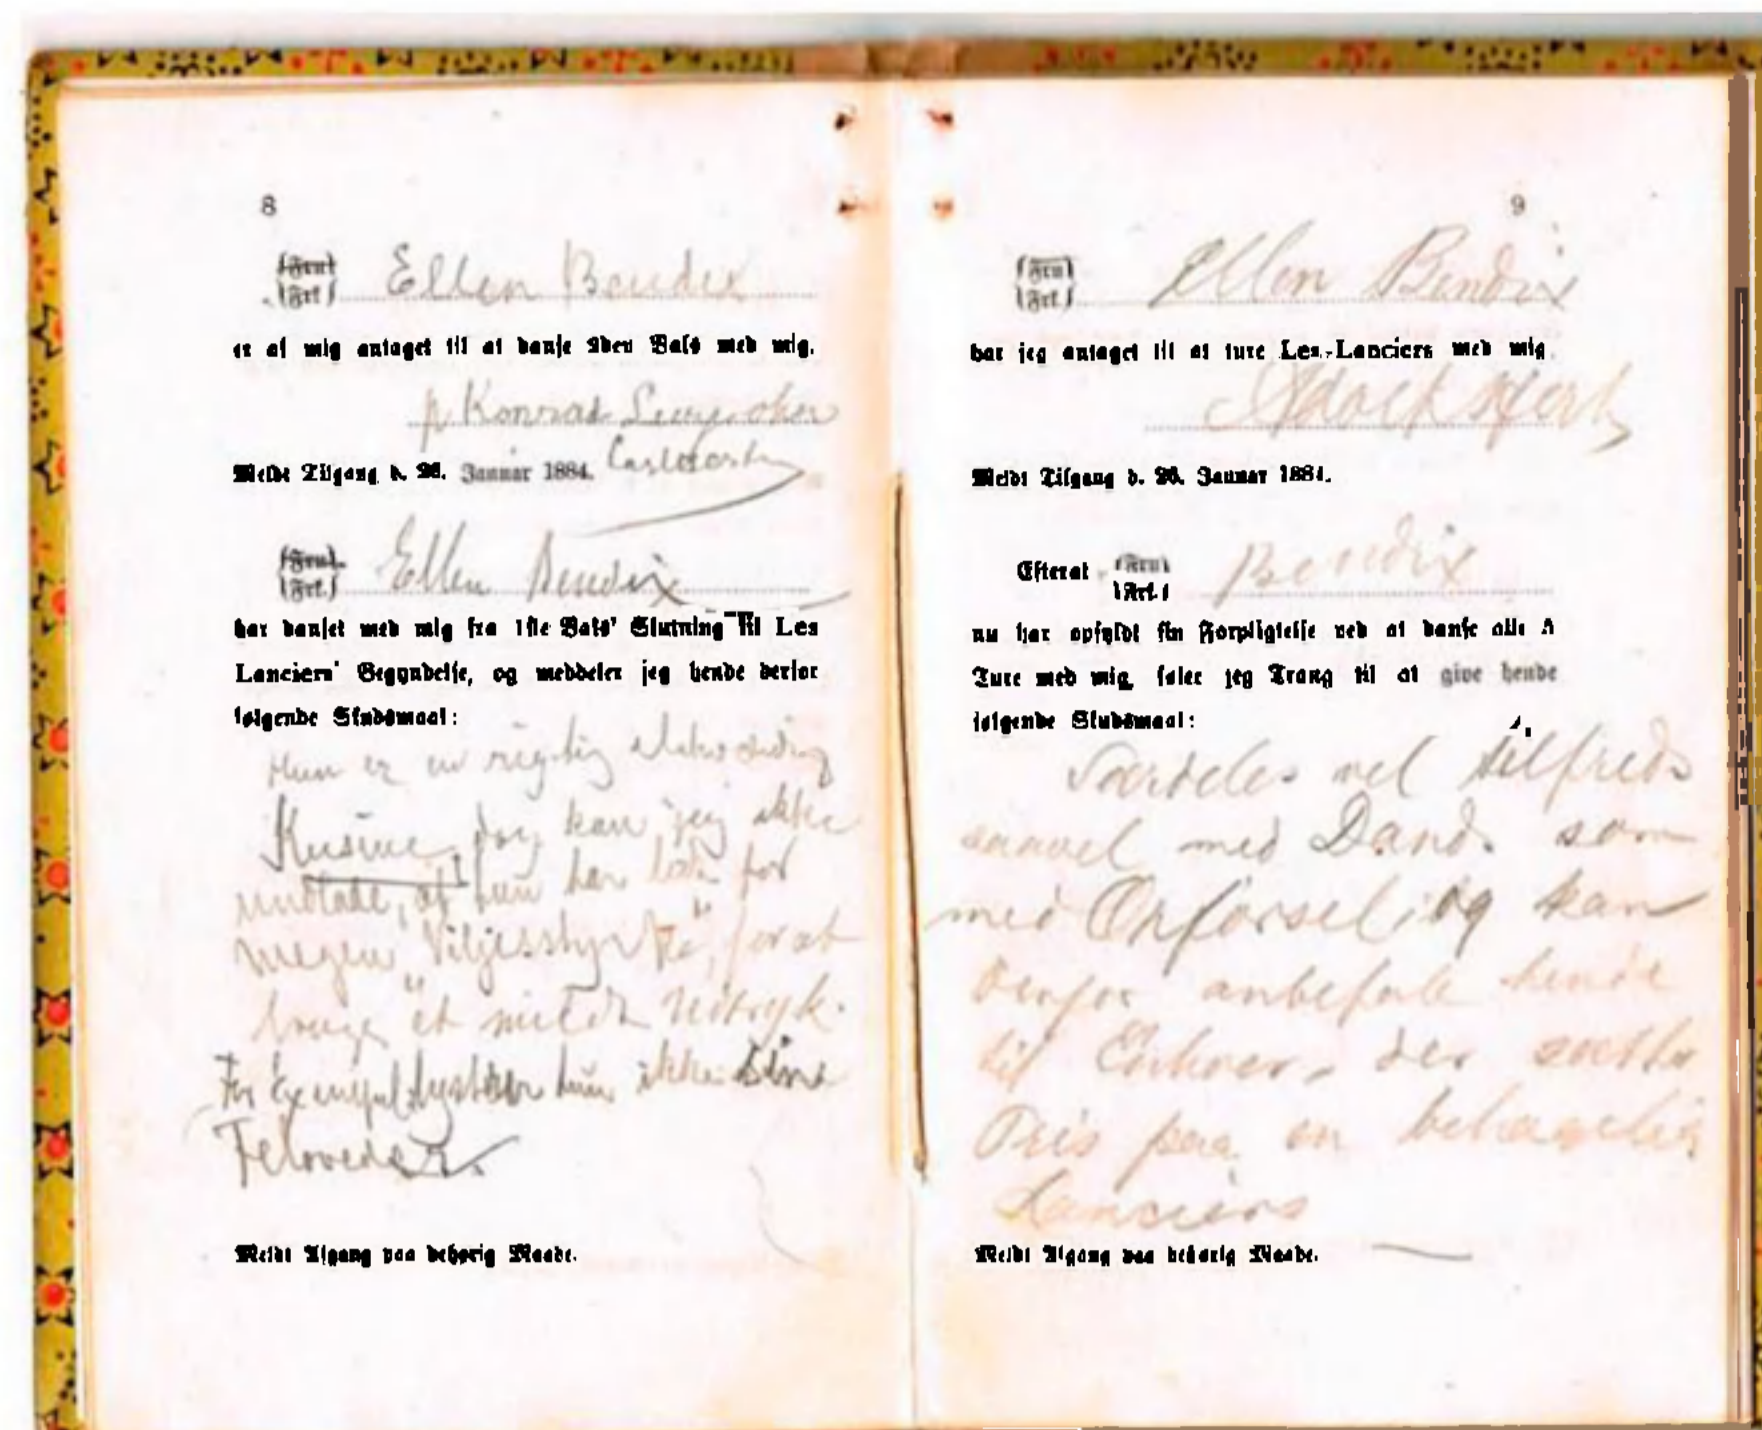 8
{Fru
Frk} Ellen Bendix
er af mig antaget til at danse 2den Vals med mig.
p Konrad
Meldt Tilgang d. 26. Januar 1884. Carl
{Fru
Frk.} Ellen Bendix
har danset med mig fra 1ste Vals' Slutning til Les
Lanciers' Begyndelse, og meddeler jeg hende derfor
følgende Skudsmaal:
Hun er en rigtig
Kusine, dog kan jeg ikke
undlade, at hun har for
megen "Viljesstyrke", for at
bruge et mildt Udtryk.
For Exempel hun ikke sine
9
{Fru
Frk.} Ellen Bendix
har jeg antaget til at ture Les-Lanciers med mig
Adolf Hertz
Meldt Tilgang d. 26. Januar 1884.
Efterat {Fru
Frk.} Bendix
nu har opfyldt sin Forpligtelse ved at danse alle 5
Ture med mig, føler jeg Trang til at give hende
følgende Skudsmaal:
Særdeles vel tilfreds
saavel med Dands som
med Opførsel og kan
derfor anbefale hende
til Enhver, der sætter
Pris paa en behagelig
Lanciers
Meldt Afgang paa behørig Maade.
Meldt Afgang paa behørig Maade.